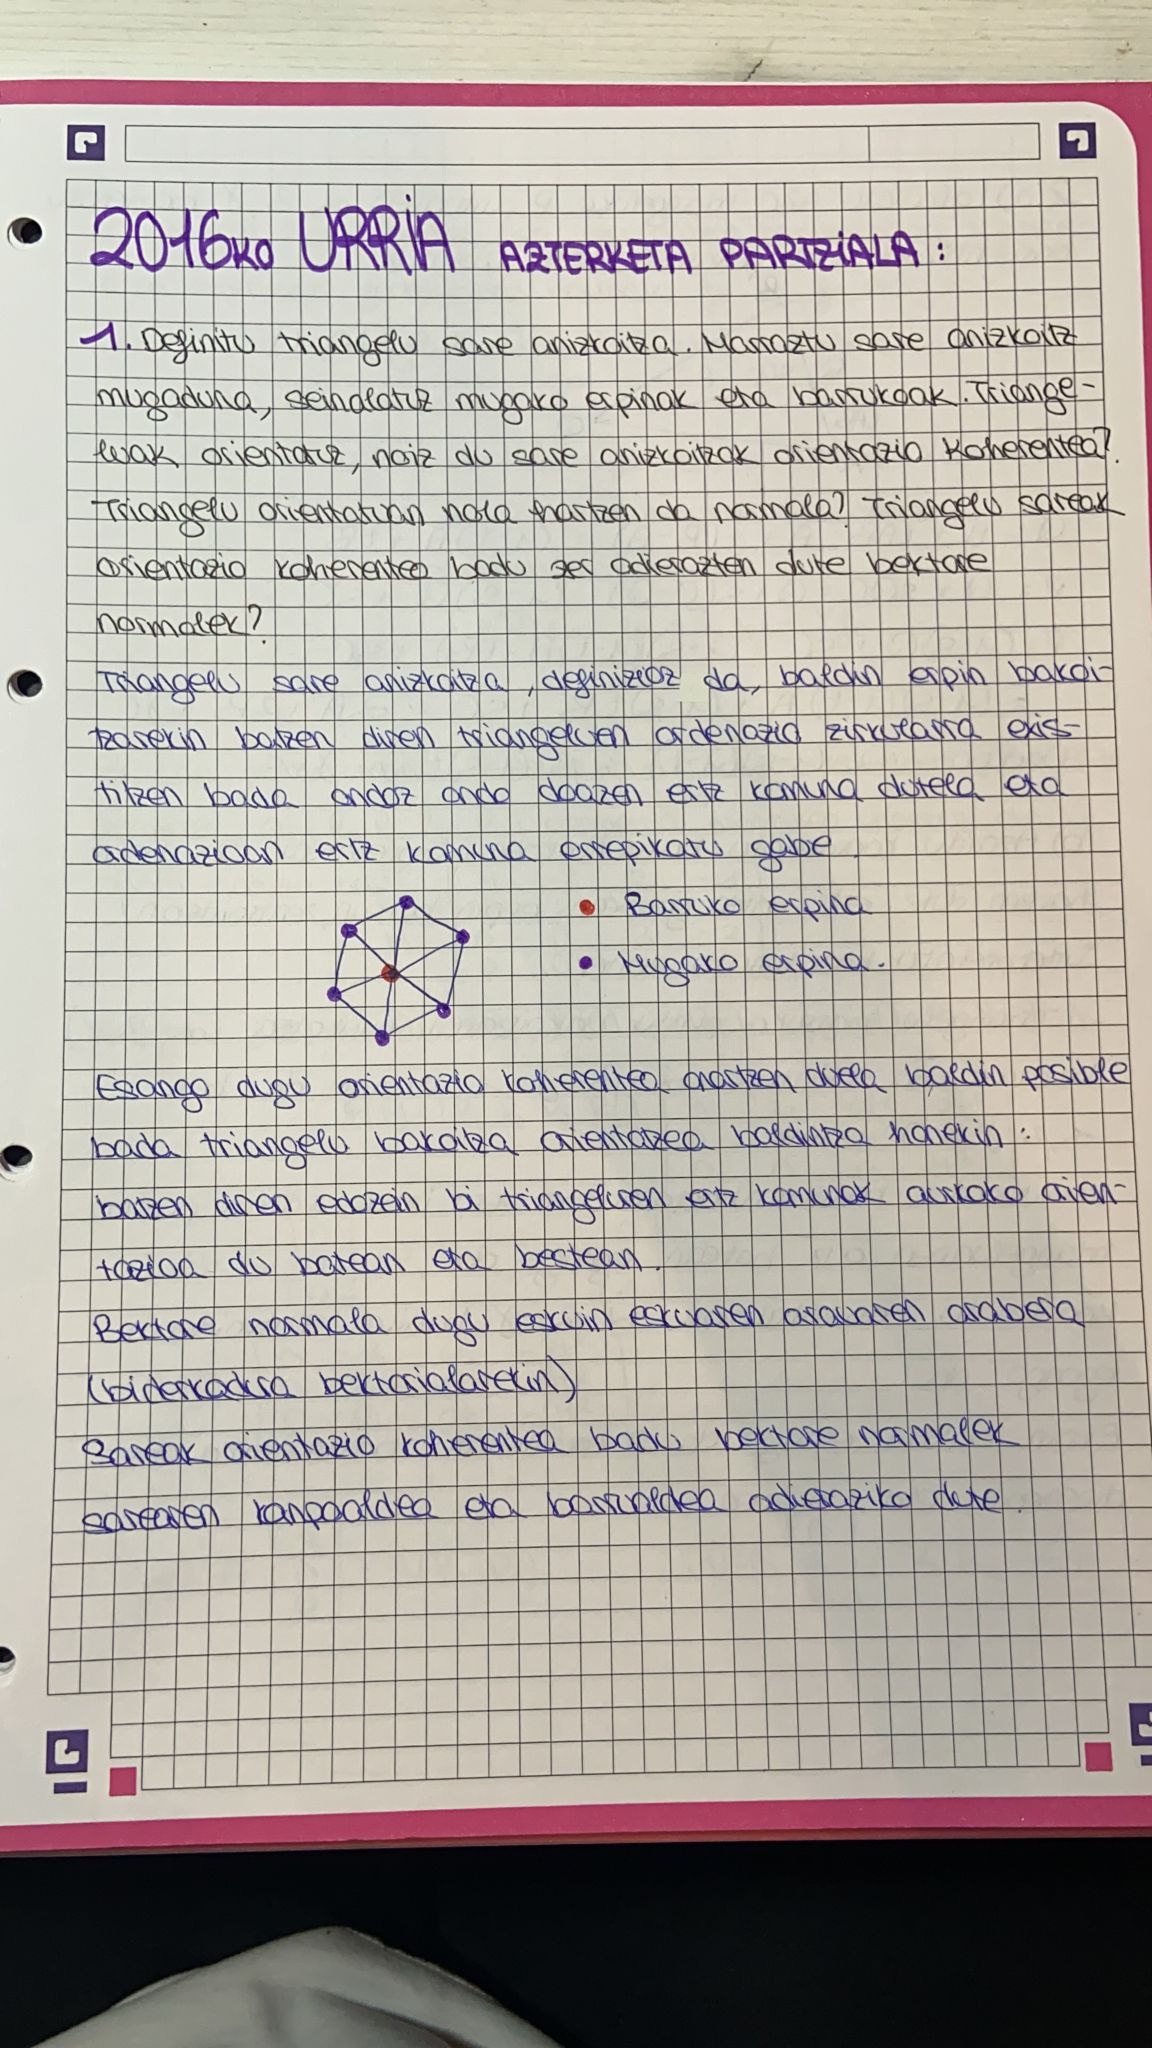 2016ko URRIA AZTERKETA PARTZIALA:
1. Definitu triangelu sare anizkoitza. Marraztu sare anizkoitz
mugaduna, seinalatuz mugako erpinak eta barrukoak. Triange-
luak orientatuz, noiz du sare anizkoitzak orientazio koherentea?
Triangelu orientatuan nola hartzen da normala? Triangelu sareak
orientazio koherentea badu zer adierazten dute bektore
normalek?
Triangelu sare anizkoitza, definizioz da, baldin erpin bakoi-
tzarekin batzen diren triangeluen ordenazio zirkularra exis-
titzen bada ondoz ondo doazen ertz komuna dutela eta
ordenazioan ertz komuna errepikatu gabe
• Barruko erpina
• Mugako erpina.
Esango dugu orientazio koherentea onartzen duela baldin posible
bada triangelu bakoitza orientatzea baldintza honekin:
batzen diren edozein bi triangeluren ertz komunak aurkako orien-
tazioa du batean eta bestean.
Bektore normala dugu eskuin eskuaren arauaren arabera
(biderkadura bektorialarekin)
Sareak orientazio koherentea badu bektore normalek
sarearen kanpoaldea eta barrualdea adieraziko dute.